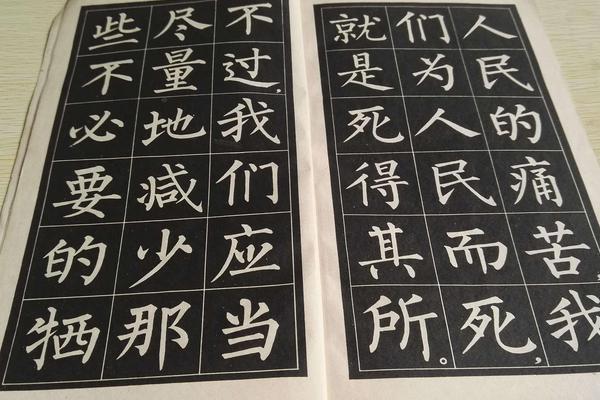 人民的痛苦,我
们为人民而死,
就是死得其所。
不过,我们应当
尽量地减少那
些不必要的牺